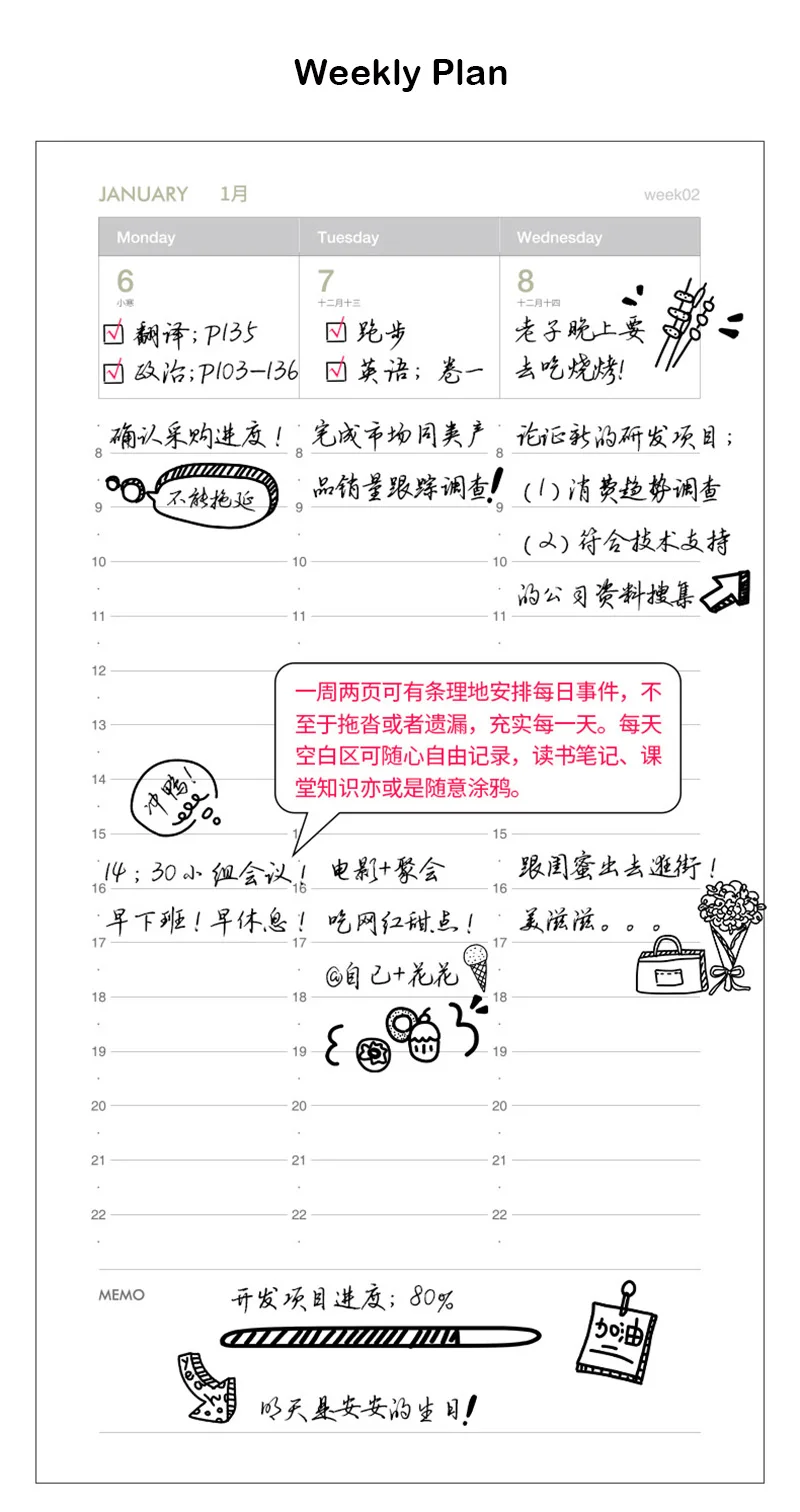 Weekly Plan
JANUARY 1月 week02
Monday Tuesday Wednesday
6 7 8
小寒 十二月十三 十二月十四
翻译;P135 跑步 老子晚上要
政治;P103—136 英语;卷一 去吃烧烤!
确认采购进度! 完成市场同类产 论证新的研发项目;
8 8 8
不能拖延 品销量跟踪调查! (1)消费趋势调查
9 9 9
(2)符合技术支持
10 10 10
的公司资料搜集
11 11 11
12
一周两页可有条理地安排每日事件,不
至于拖沓或者遗漏,充实每一天。每天
空白区可随心自由记录,读书笔记、课
堂知识亦或是随意涂鸦。
13
14
冲鸭!
15 1 15
14;30小组会议! 电影+聚会 跟闺蜜出去逛街!
16 16 16
早下班!早休息! 吃网红甜点! 美滋滋。。。
17 17 17
@自己+花花
18 18 18
19 19 19
20 20 20
21 21 21
22 22 22
MEMO 开发项目进度;80%
加油
yes
明天是安安的生日!